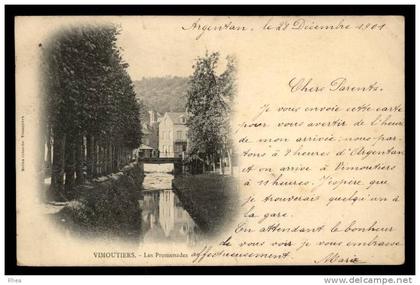 Argentan, le 27 Décembre 1901
Chers Parents.
Je vous envoie cette carte
pour vous avertir de l'heure
de mon arrivée; nous par-
tons à 8 heures d'Argentan
et on arrive à Vimoutiers
à 11 heures. J'espère que
je trouverais quelqu'un à
la gare.
En attendant le bonheur
de vous voir je vous embrasse
affectueusement
Marie
VIMOUTIERS. - Les Promenades